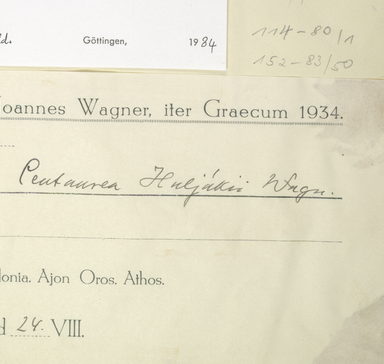 Göttingen, 1984
114-80/1
152-83/50
Joannes Wagner, iter Graecum 1934.
Centaurea Huljákii Wagn.
Ajon Oros. Athos.
24. VIII.